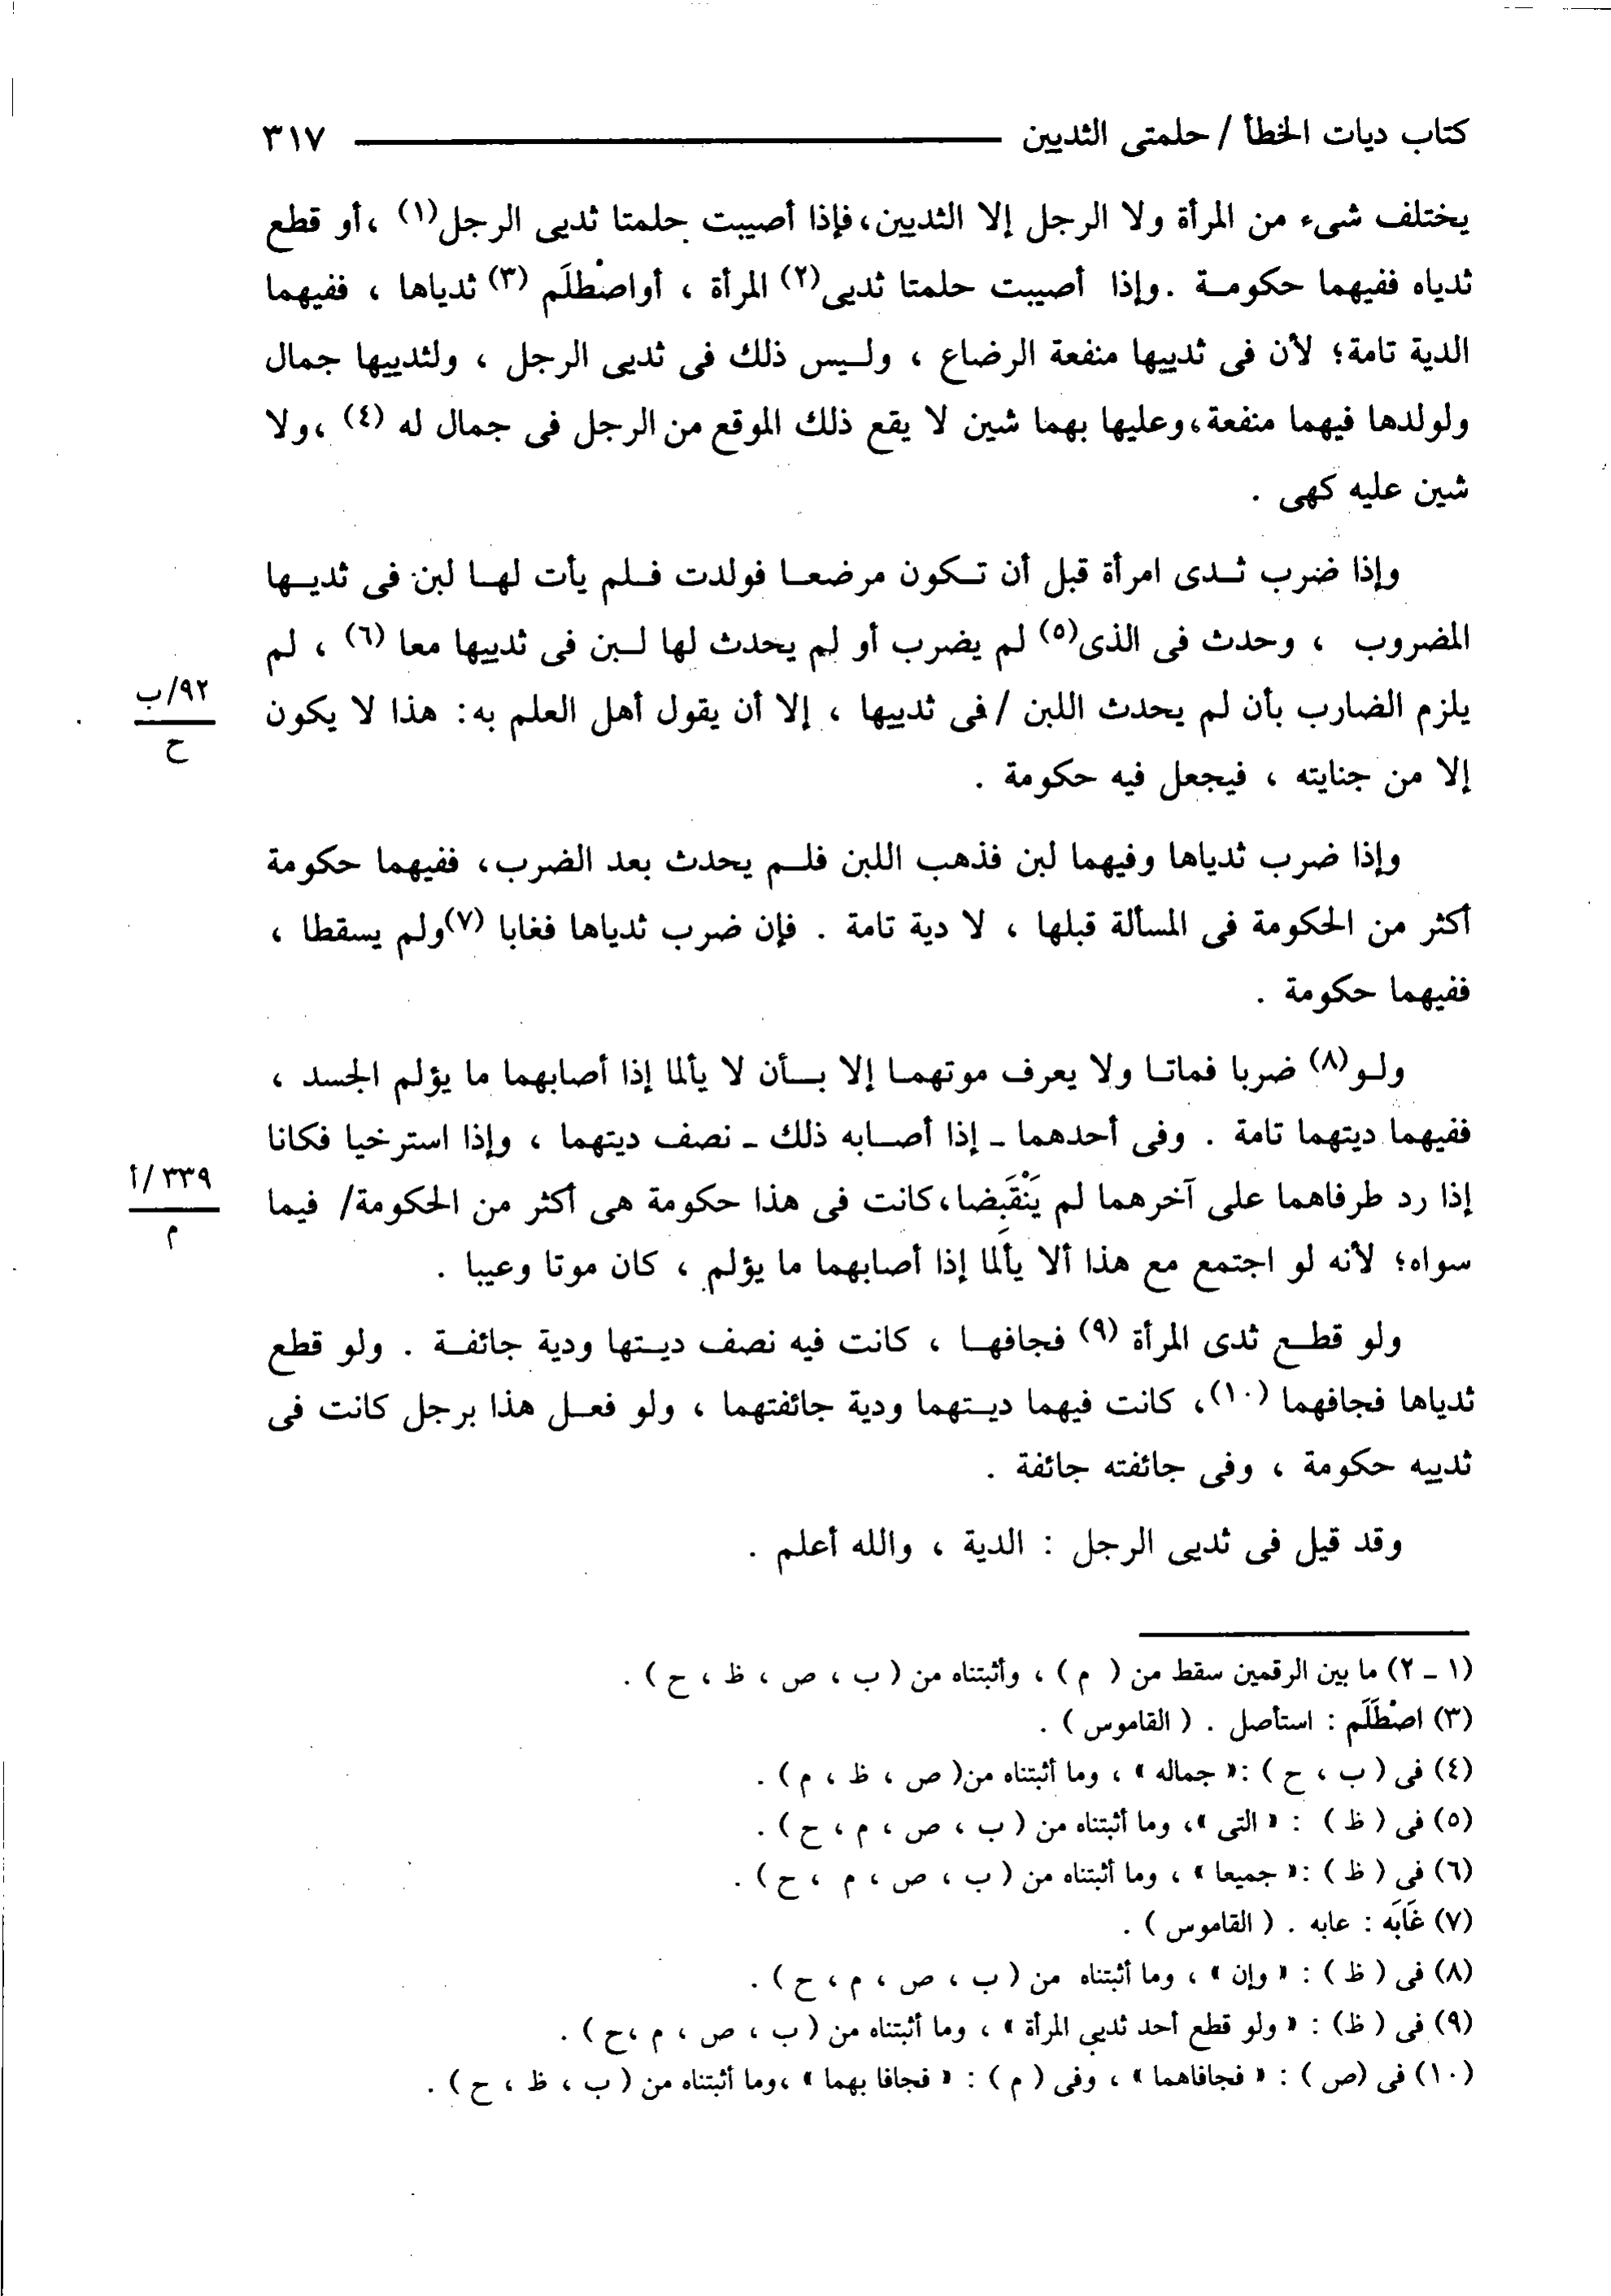 كتاب ديات الخطأ / حلمتى الثديين ٣١٧
يختلف شىء من المرأة ولا الرجل إلا الثديين، فإذا أصيبت حلمتا ثديى الرجل(١) ، أو قطع
ثدياه ففيهما حكومة . وإذا أصيبت حلمتا ثديى(٢) المرأة ، أو اصْطلَم (٣) ثدياها ، ففيهما
الدية تامة؛ لأن فى ثدييها منفعة الرضاع ، وليس ذلك فى ثديى الرجل ، ولثدييها جمال
ولولدها فيهما منفعة، وعليها بهما شين لا يقع ذلك الموقع من الرجل فى جمال له (٤) ، ولا
شين عليه كهى .
وإذا ضرب ثدى امرأة قبل أن تكون مرضعا فولدت فلم يأت لها لبن فى ثديها
المضروب ، وحدث فى الذى(٥) لم يضرب أو لم يحدث لها لبن فى ثدييها معا (٦) ، لم
يلزم الضارب بأن لم يحدث اللبن / فى ثدييها ، إلا أن يقول أهل العلم به: هذا لا يكون
٩٢/ب
ح
إلا من جنايته ، فيجعل فيه حكومة .
وإذا ضرب ثدياها وفيهما لبن فذهب اللبن فلم يحدث بعد الضرب، ففيهما حكومة
أكثر من الحكومة فى المسألة قبلها ، لا دية تامة . فإن ضرب ثدياها فغابا (٧) ولم يسقطا ،
ففيهما حكومة .
ولو(٨) ضربا فماتا ولا يعرف موتهما إلا بأن لا يألما إذا أصابهما ما يؤلم الجسد ،
ففيهما ديتهما تامة . وفى أحدهما - إذا أصابه ذلك - نصف ديتهما ، وإذا استرخيا فكانا
إذا رد طرفاهما على آخرهما لم يَنْقَبِضا، كانت فى هذا حكومة هى أكثر من الحكومة/ فيما
٣٣٩/أ
م
سواه؛ لأنه لو اجتمع مع هذا ألا يألما إذا أصابهما ما يؤلم ، كان موتا وعيبا .
ولو قطع ثدى المرأة (٩) فجافها ، كانت فيه نصف ديتها ودية جائفة . ولو قطع
ثدياها فجافهما (١٠)، كانت فيهما ديتهما ودية جائفتهما ، ولو فعل هذا برجل كانت فى
ثدييه حكومة ، وفى جائفته جائفة .
وقد قيل فى ثديى الرجل : الدية ، والله أعلم .
(١ - ٢) ما بين الرقمين سقط من ( م ) ، وأثبتناه من ( ب ، ص ، ظ ، ح ) .
(٣) اصْطَلَم : استأصل . ( القاموس ) .
(٤) فى ( ب ، ح ) :« جماله » ، وما أثبتناه من( ص ، ظ ، م ) .
(٥) فى ( ظ ) : « التى »، وما أثبتناه من ( ب ، ص ، م ، ح ) .
(٦) فى ( ظ ) :« جميعا » ، وما أثبتناه من ( ب ، ص ، م ، ح ) .
(٧) غَابَه : عابه . ( القاموس ) .
(٨) فى ( ظ ) : « وإن » ، وما أثبتناه من ( ب ، ص ، م ، ح ) .
(٩) فى ( ظ) : « ولو قطع أحد ثديى المرأة » ، وما أثبتناه من ( ب ، ص ، م ،ح ) .
(١٠) فى (ص ) : « فجافاهما » ، وفى ( م ) : « فجافا بهما » ،وما أثبتناه من ( ب ، ظ ، ح ) .